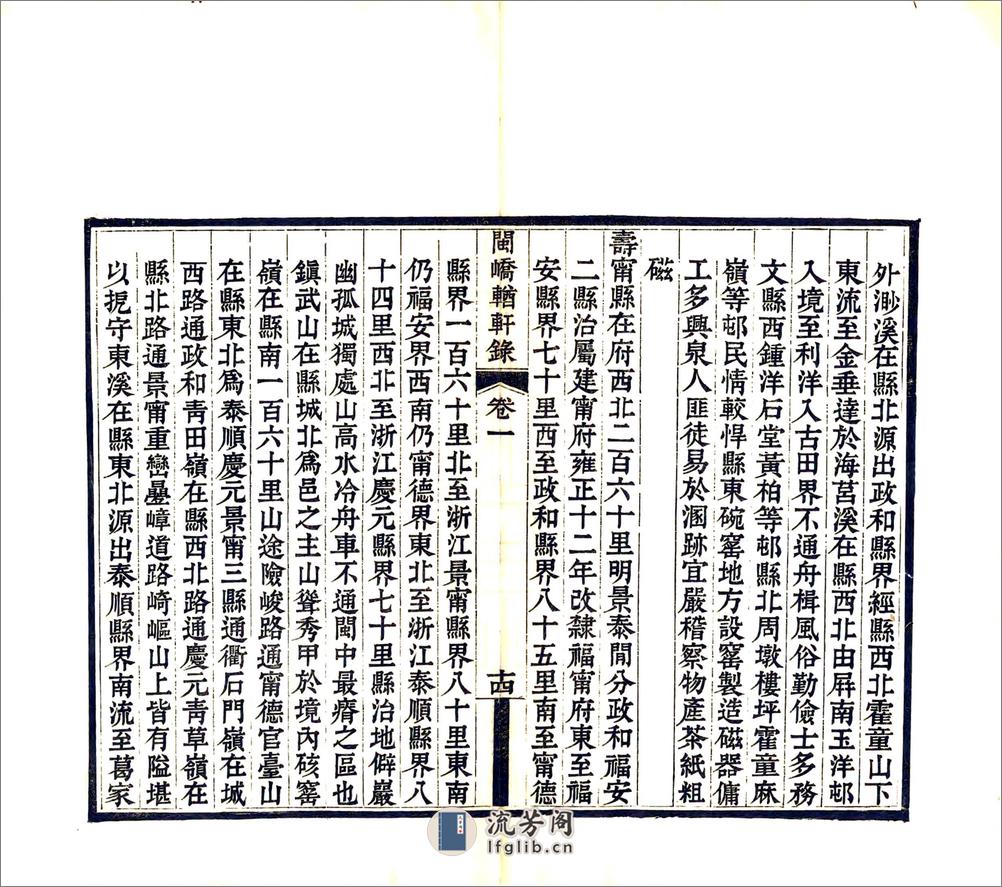 外渺溪在縣北源出政和縣界經縣西北霍童山下
東流至金垂達於海莒溪在縣西北由屛南玉洋邨
入境至利洋入古田界不通舟楫風俗勤儉士多務
文縣西鍾洋石堂黃柏等邨縣北周墩樓坪霍童麻
嶺等邨民情較悍縣東碗窰地方設窰製造磁器傭
工多興泉人匪徒易於溷跡宜嚴稽察物產茶紙粗
磁
壽甯縣在府西北二百六十里明景泰閒分政和福安
二縣治屬建甯府雍正十二年改隸福甯府東至福
安縣界七十里西至政和縣界八十五里南至甯德
閩嶠輶軒錄 卷一 十四
縣界一百六十里北至浙江景甯縣界八十里東南
仍福安界西南仍甯德界東北至浙江泰順縣界八
十四里西北至浙江慶元縣界七十里縣治地僻巖
幽孤城獨處山高水冷舟車不通閩中最瘠之區也
鎭武山在縣城北爲邑之主山聳秀甲於境內硋窰
嶺在縣南一百六十里山途險峻路通甯德官臺山
在縣東北爲泰順慶元景甯三縣通衢石門嶺在城
西路通政和靑田嶺在縣西北路通慶元靑草嶺在
縣北路通景甯重巒疊嶂道路崎嶇山上皆有隘堪
以扼守東溪在縣東北源出泰順縣界南流至葛家
流芳阁
lfglib.cn